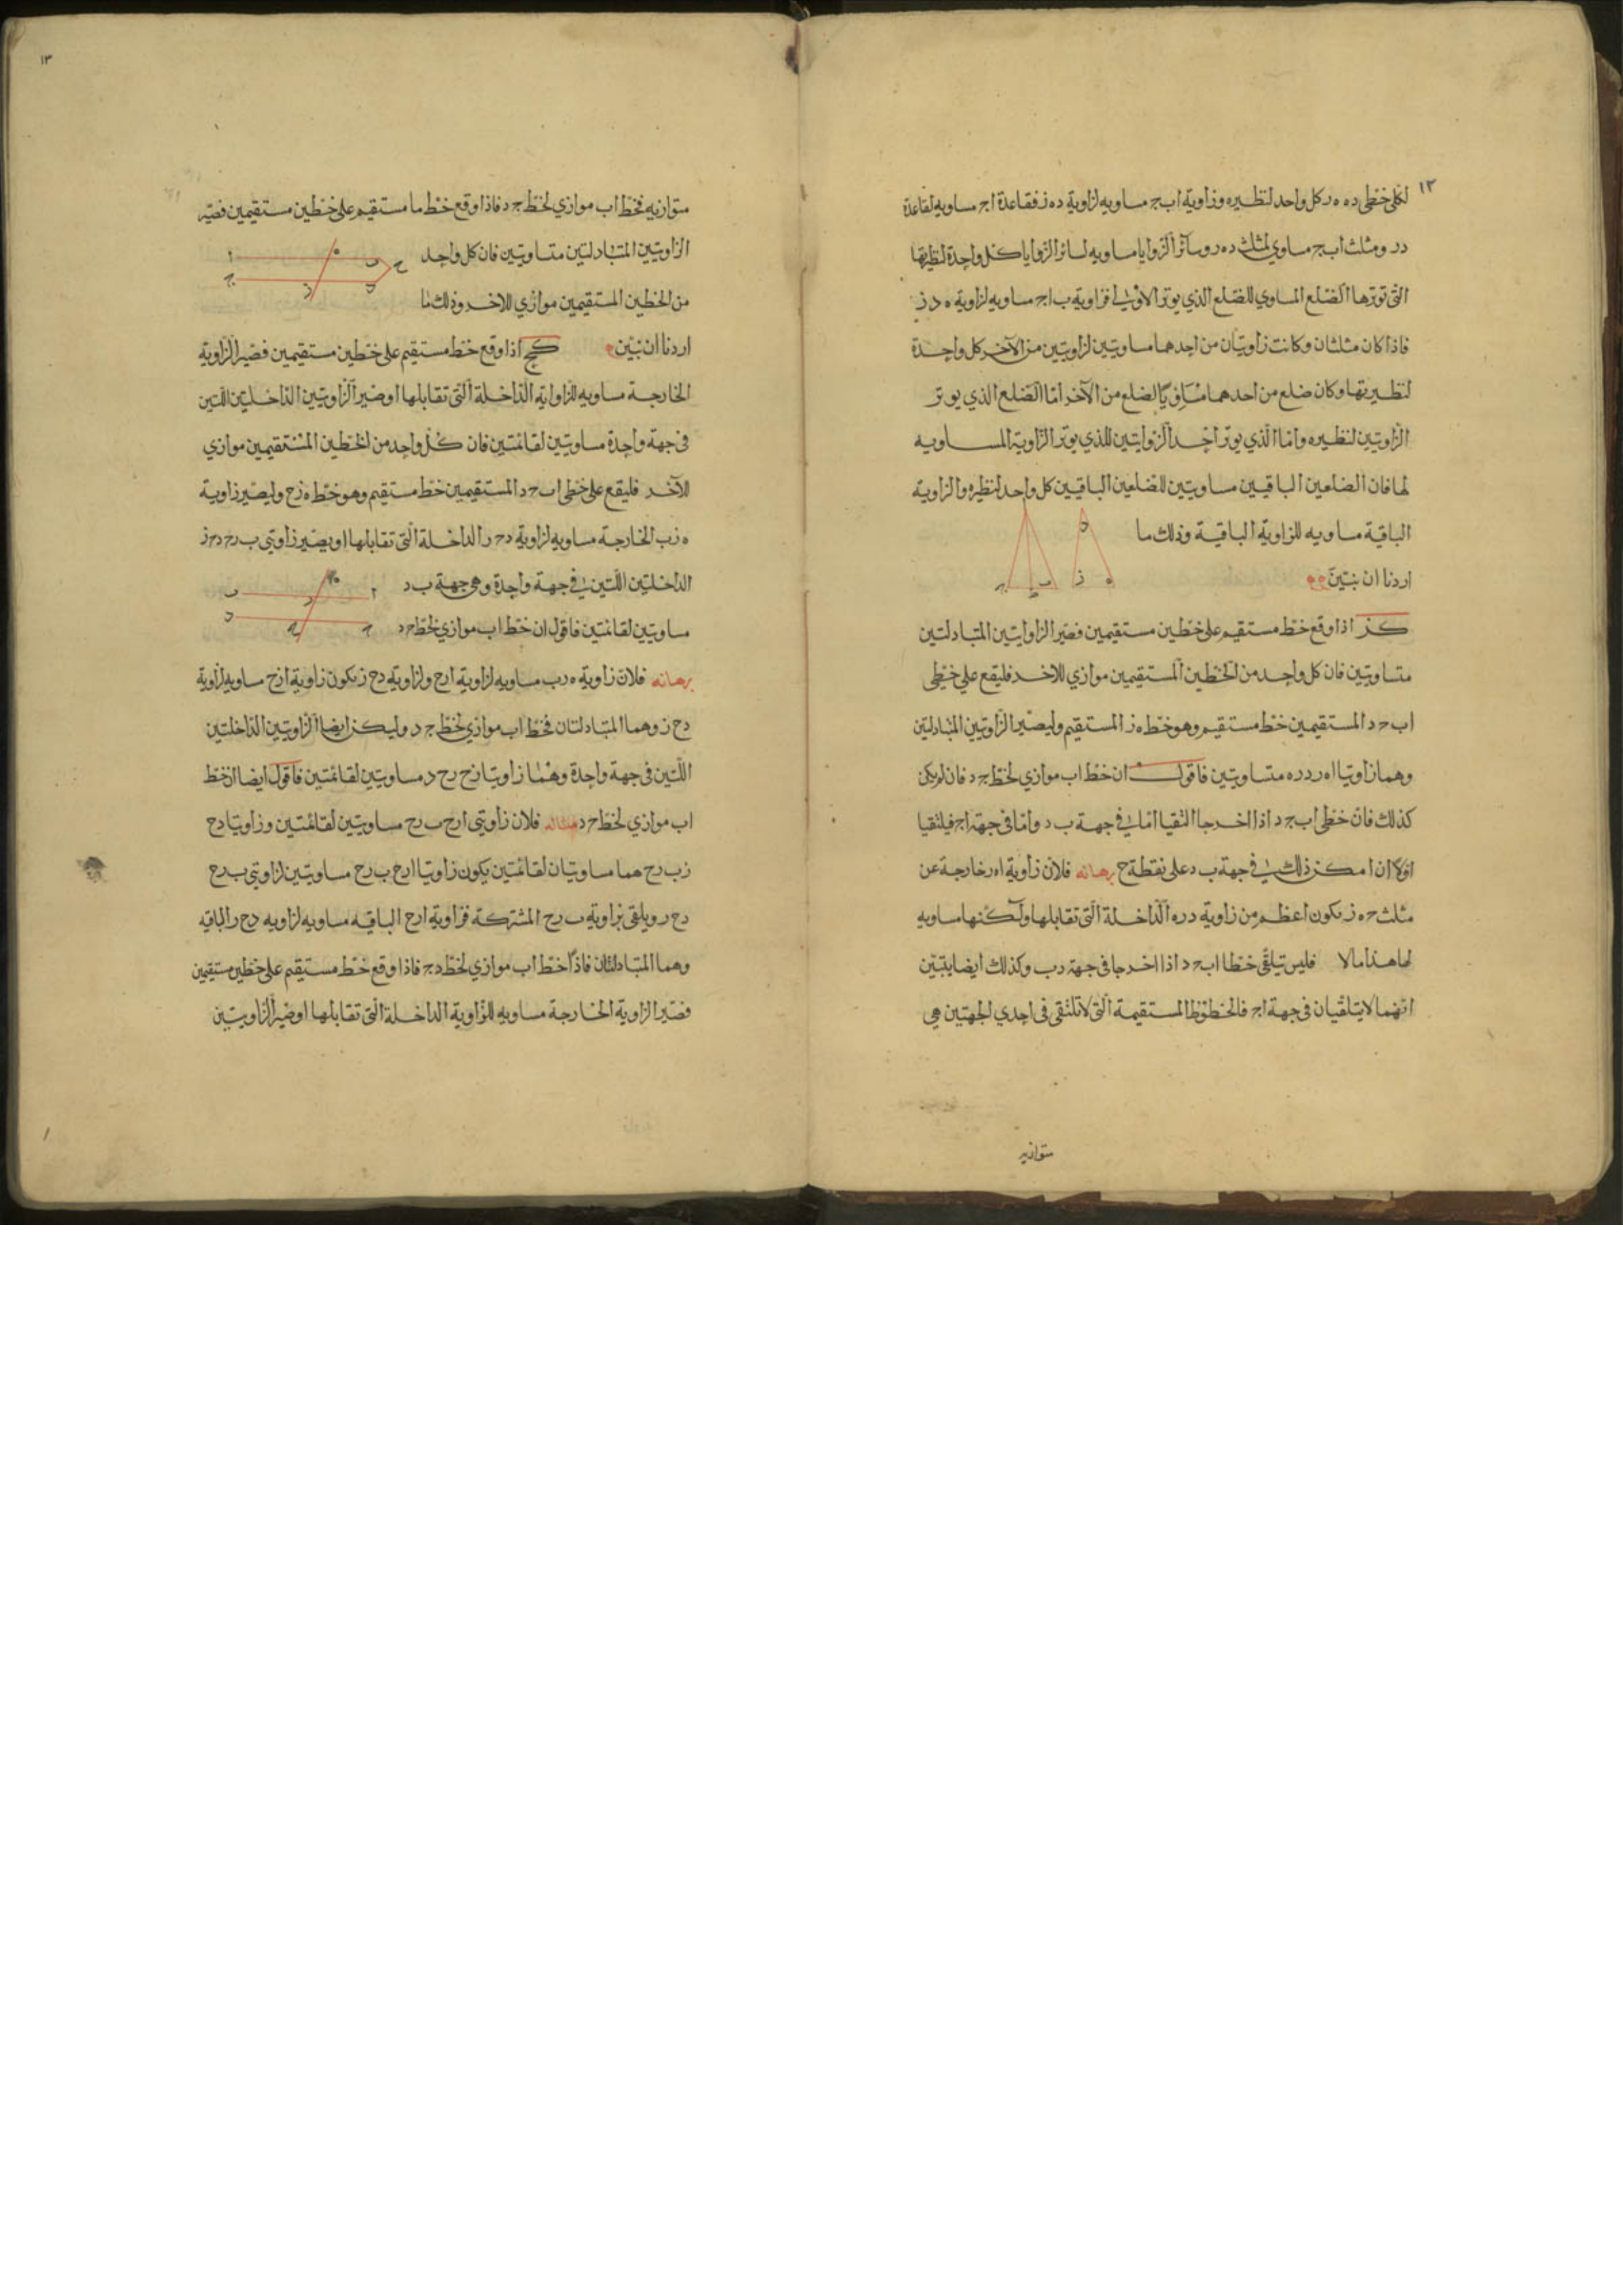 ١٢
لكلي خطي د ه ه ر كل واحد لنظيره وزاوية اب ج مساويه لزاوية د ه ز فقاعدة اج مساويه لقاعدة
در ومثلث اب ج مساوي لمثلث د ه ر وسائر الزوايا مساويه لسائر الزوايا كل واحدة لنظيرتها
التى توترها الضلع المساوي للضلع الذي يوتر الاولى فزاوية ب اج مساويه لزاوية ه د ز
فاذا كان مثلثان وكانت زاويتان من احدهما مساويتين لزاويتين من الآخر كل واحدة
لنظيرتها وكان ضلع من احدهما مساويًا لضلع من الآخر امّا الضلع الذي يوتر
الزاويتين لنظيره وامّا الّذي يوتر احد الزوايتين للذي يوتر الزاوية المساويه
لها فان الضلعين الباقيين مساويتين للضلعين الباقيين كل واحد لنظيره والزاوية
الباقية مساويه للزاوية الباقية وذلك ما
اردنا ان نبيّن
د
ب ز ه
كز اذا وقع خط مستقيم على خطين مستقيمين فصيّر الزاوايتين المتبادلتين
متساويتين فان كل واحد من الخطين المستقيمين موازي للاخر فليقع على خطي
اب ح د المستقيمين خط مستقيم وهو خط ه ز المستقيم وليصيّر الزاويتين المتبادلتين
وهما زاويتا اه ر د ر ه متساويتين فاقول ان خط اب موازي لخط ج د فان لم يكن
كذلك فانّ خطي اب ج د اذا اخرجا التقيا امّا في جهة ب د وامّا فى جهة اج فيلتقيا
اوّلا ان امكن ذلك في جهة ب د على نقطة ح برهانه فلانّ زاوية اه ر خارجة عن
مثلث ح ه ز يكون اعظم من زاوية د ر ه الداخلة الّتى تقابلها ولكنها مساويه
لها هذا مالا فليس تيلقى خطا اب ح د اذا اخرجا فى جهة د ب وكذلك ايضا يتبيّن
انّهما لا يتلقيان فى جهة اج فالخطوط المستقيمة الّتى لا تلتقى فى احدي الجهتين هي
متوازيه
١٣
متوازيه فخط اب موازي لخط ج د فاذا وقع خط ما مستقيم على خطين مستقيمين فصيّر
الزاويتين المتبادلتين متساويتين فان كل واحد
من الخطين المستقيمين موازي للاخر وذلك ما
اردنا ان نبيّن
ا ه ب ح
ج ز د
كح اذا وقع خط مستقيم على خطين مستقيمين فصيّر الزاوية
الخارجة مساويه للزاواية الداخلة الّتى تقابلها او صيّر الزاويتين الداخليتين اللتين
فى جهة واحدة مساويتين لقائمتين فان كلّ واحد من الخطين المستقيمين موازي
للآخر فليقع على خطي اب ح د المستقيمين خط مستقيم وهو خط ه ز ح وليصيّر زاوية
ه ز ب الخارجة مساويه لزاوية د ح ر الداخلة الّتى تقابلها او يصيّر زاويتي ب ر ح د ح ز
الداخلتين اللّتين في جهة واحدة وهي جهة ب د
مساويتين لقائمتين فاقول ان خط اب موازي لخط ح د
ب ر ه ا
د ح ج
برهانه فلانّ زاوية ه ر ب مساويه لزاوية ا ر ح ولزاوية د ح ز تكون زاوية ا ز ح مساويه لزاوية
د ح ز وهما المتبادلتان فخط اب موازي لخط ج د وليكن ايضا الزاويتين الداخلتين
اللّتين فى جهة واحدة وهما زاويتا ب ر ح ر ح د مساويتين لقائمتين فاقول ايضا ان خط
اب موازي لخط ح د مثاله فلان زاويتي ا ر ح ب ر ح مساويتين لقائمتين وزاويتا د ح
ز ب ر ح هما مساويتان لقائمتين يكون زاويتا ا ر ح ب ر ح مساويتين لزاويتي ب ر ح
د ح ر ويلقى بزاوية ب ر ح المشتركة فزاوية ا ر ح الباقيه مساويه لزاويه د ح ر الباقيه
وهما المتبادلتان فاذًا خط اب موازي لخط د ج فاذا وقع خط مستقيم على خطين مستقيمين
فصيّر الزاوية الخارجة مساويه للزاوية الداخلة الّتى تقابلها او صيّر الزاويتين